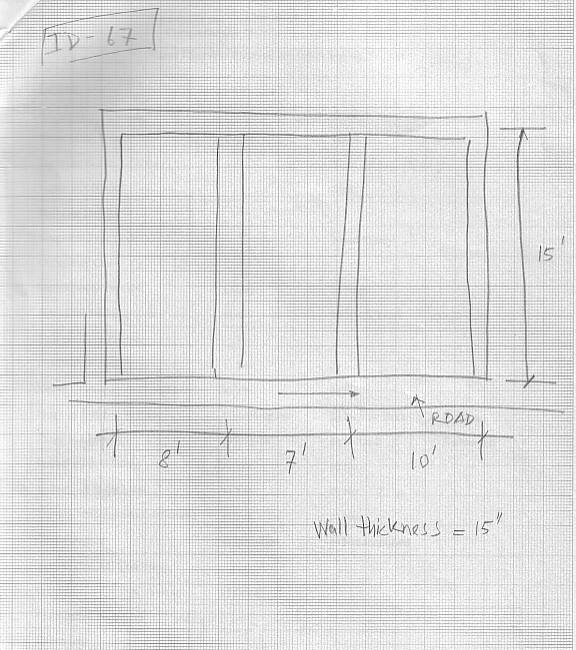 ID-67
15'
ROAD
8' 7' 10'
Wall thickness = 15"